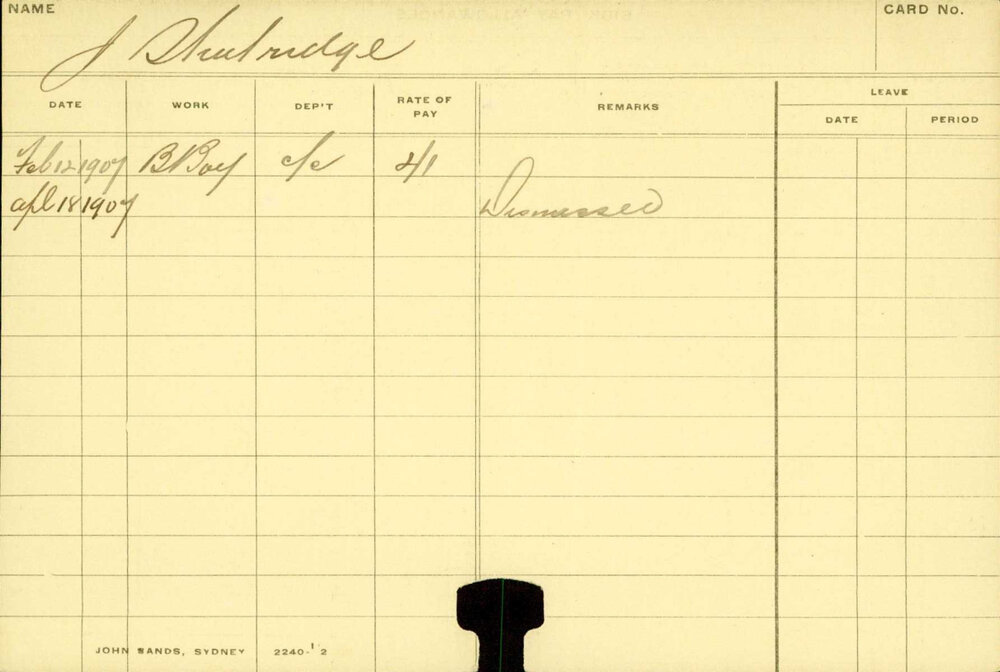 NAME
CARD No.
J Shutridge
DATE WORK DEP'T RATE OF PAY REMARKS LEAVE
DATE PERIOD
Feb 12 1907 B Boy c/c 4/1
Apl 18 1907 Dismissed
JOHN SANDS, SYDNEY 2240-1 2